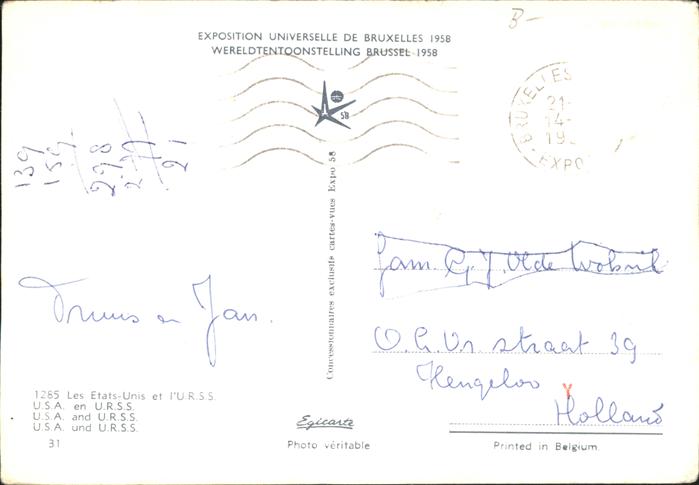 B-
EXPOSITION UNIVERSELLE DE BRUXELLES 1958
WERELDTENTOONSTELLING BRUSSEL 1958
5B
BRUXELLES
21-
14-
19
EXPO
139
159
298
21
Concessionnaires exclusifs cartes-vues Expo 58
Truus en Jan.
Fam. G. J. Olde Wolbrik
straat 39
Hengeloo
Holland
1285 Les Etats-Unis et l'U.R.S.S.
U.S.A. en U.R.S.S.
U.S.A. and U.R.S.S.
U.S.A. und U.R.S.S.
31
Egicarte
Photo véritable
Printed in Belgium.